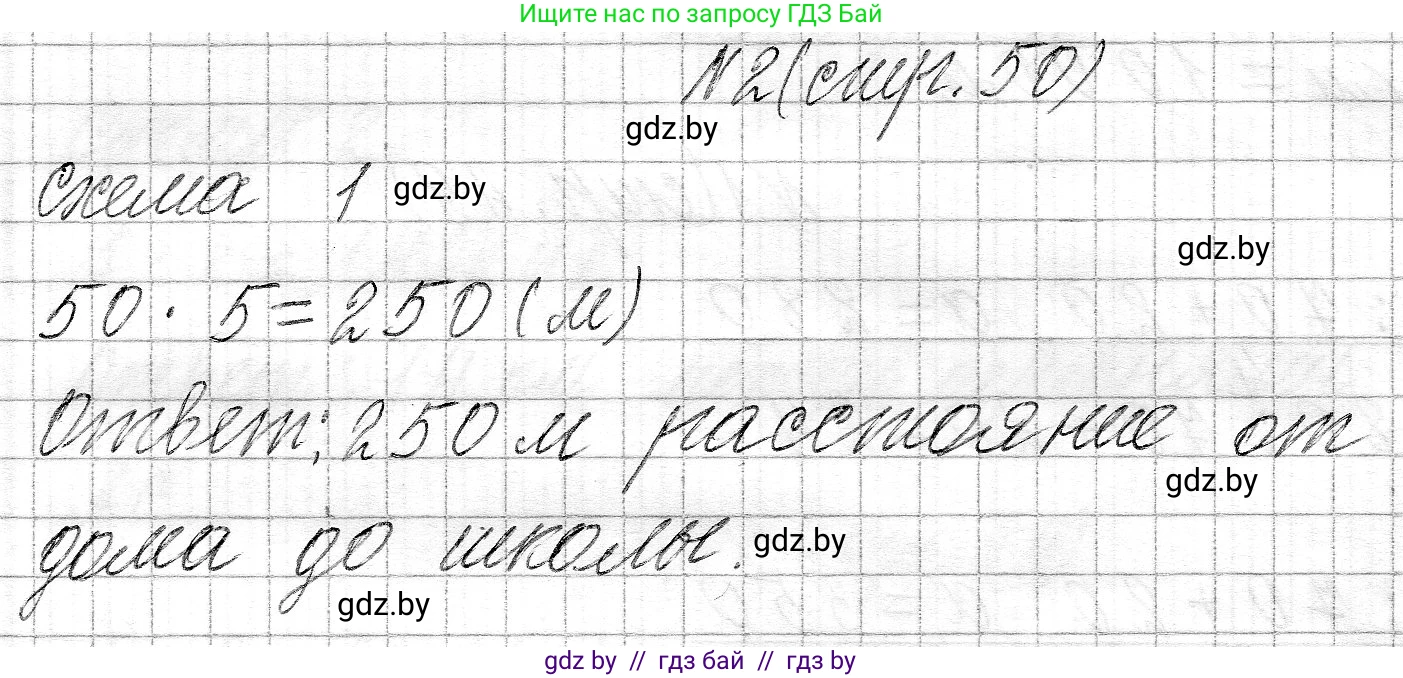 Ищите нас по запросу ГДЗ Бай
№2 (стр. 50)
gdz.by
Схема 1 gdz.by
gdz.by
50 · 5 = 250 (м)
Ответ: 250 м расстояние от
gdz.by
дома до школы. gdz.by
gdz.by
gdz by // гдз бай // гдз by